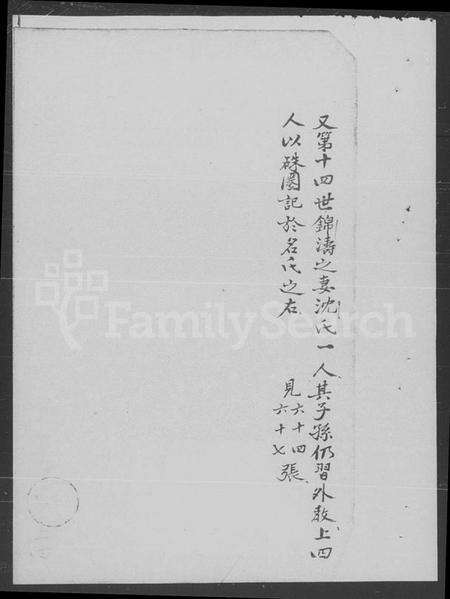 又第十四世錦濤之妻沈氏一人其子孫仍習外教上四
人以硃圈記於名氏之右
見六十四
六十七張
FamilySearch